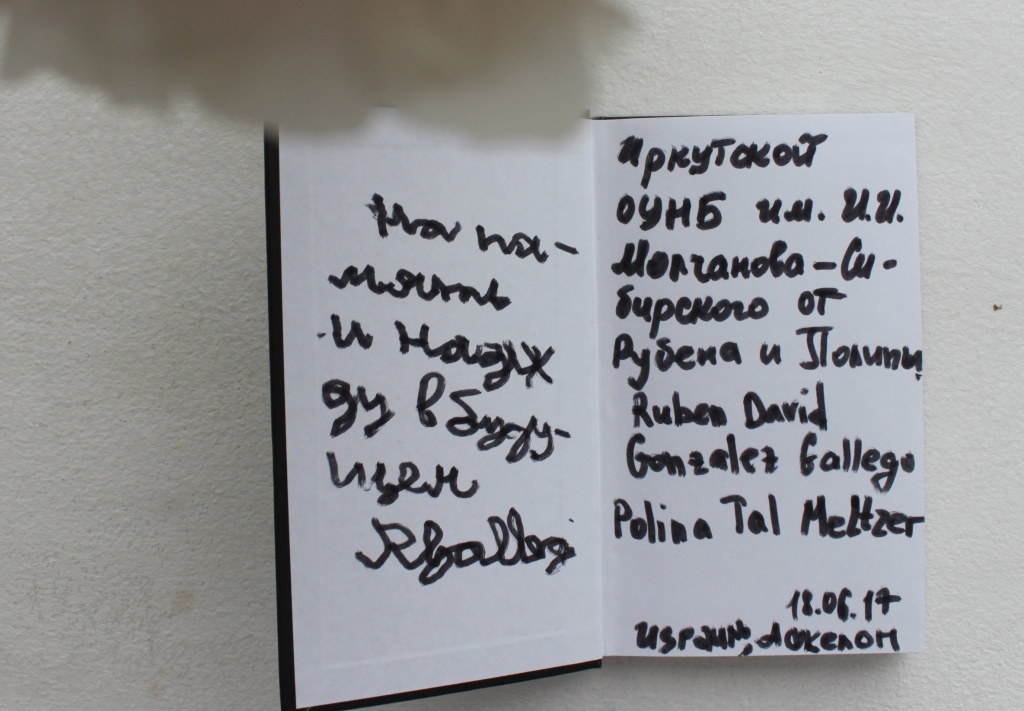 На па-
мять
и надеж
ду в буду-
щем
RGallego
Иркутской
ОУНБ им. И.И.
Молчанова-Си-
бирского от
Рубена и Полины
Ruben David
Gonzalez Gallego
Polina Tal Meltzer
18.06.17
Израиль,